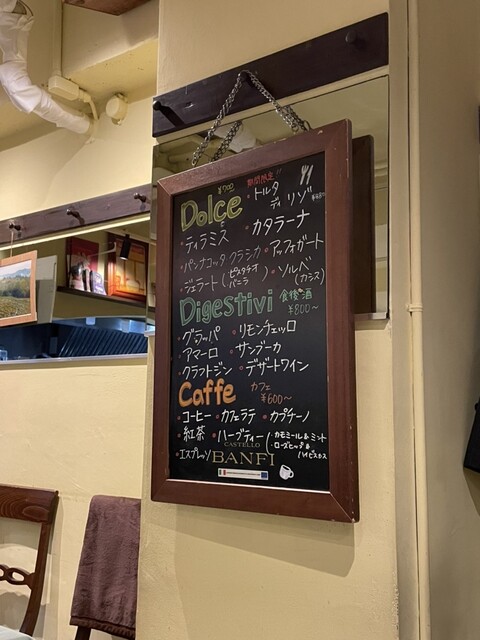 Dolce ¥700 期間限定!! ・トルタ ディ リゾ
・ティラミス ・カタラーナ
・パンナコッタ クラシカ ・アッフォガート
・ジェラート (ピスタチオ バニラ) ・ソルベ (カシス)
Digestivi 食後酒 ¥800〜
・グラッパ ・リモンチェッロ
・アマーロ ・サンブーカ
・クラフトジン ・デザートワイン
Caffe カフェ ¥600〜
・コーヒー ・カフェラテ ・カプチーノ
・紅茶 ・ハーブティー (・カモミール&ミント
・ローズヒップ&ハイビスカス
・エスプレッソ
CASTELLO
BANFI